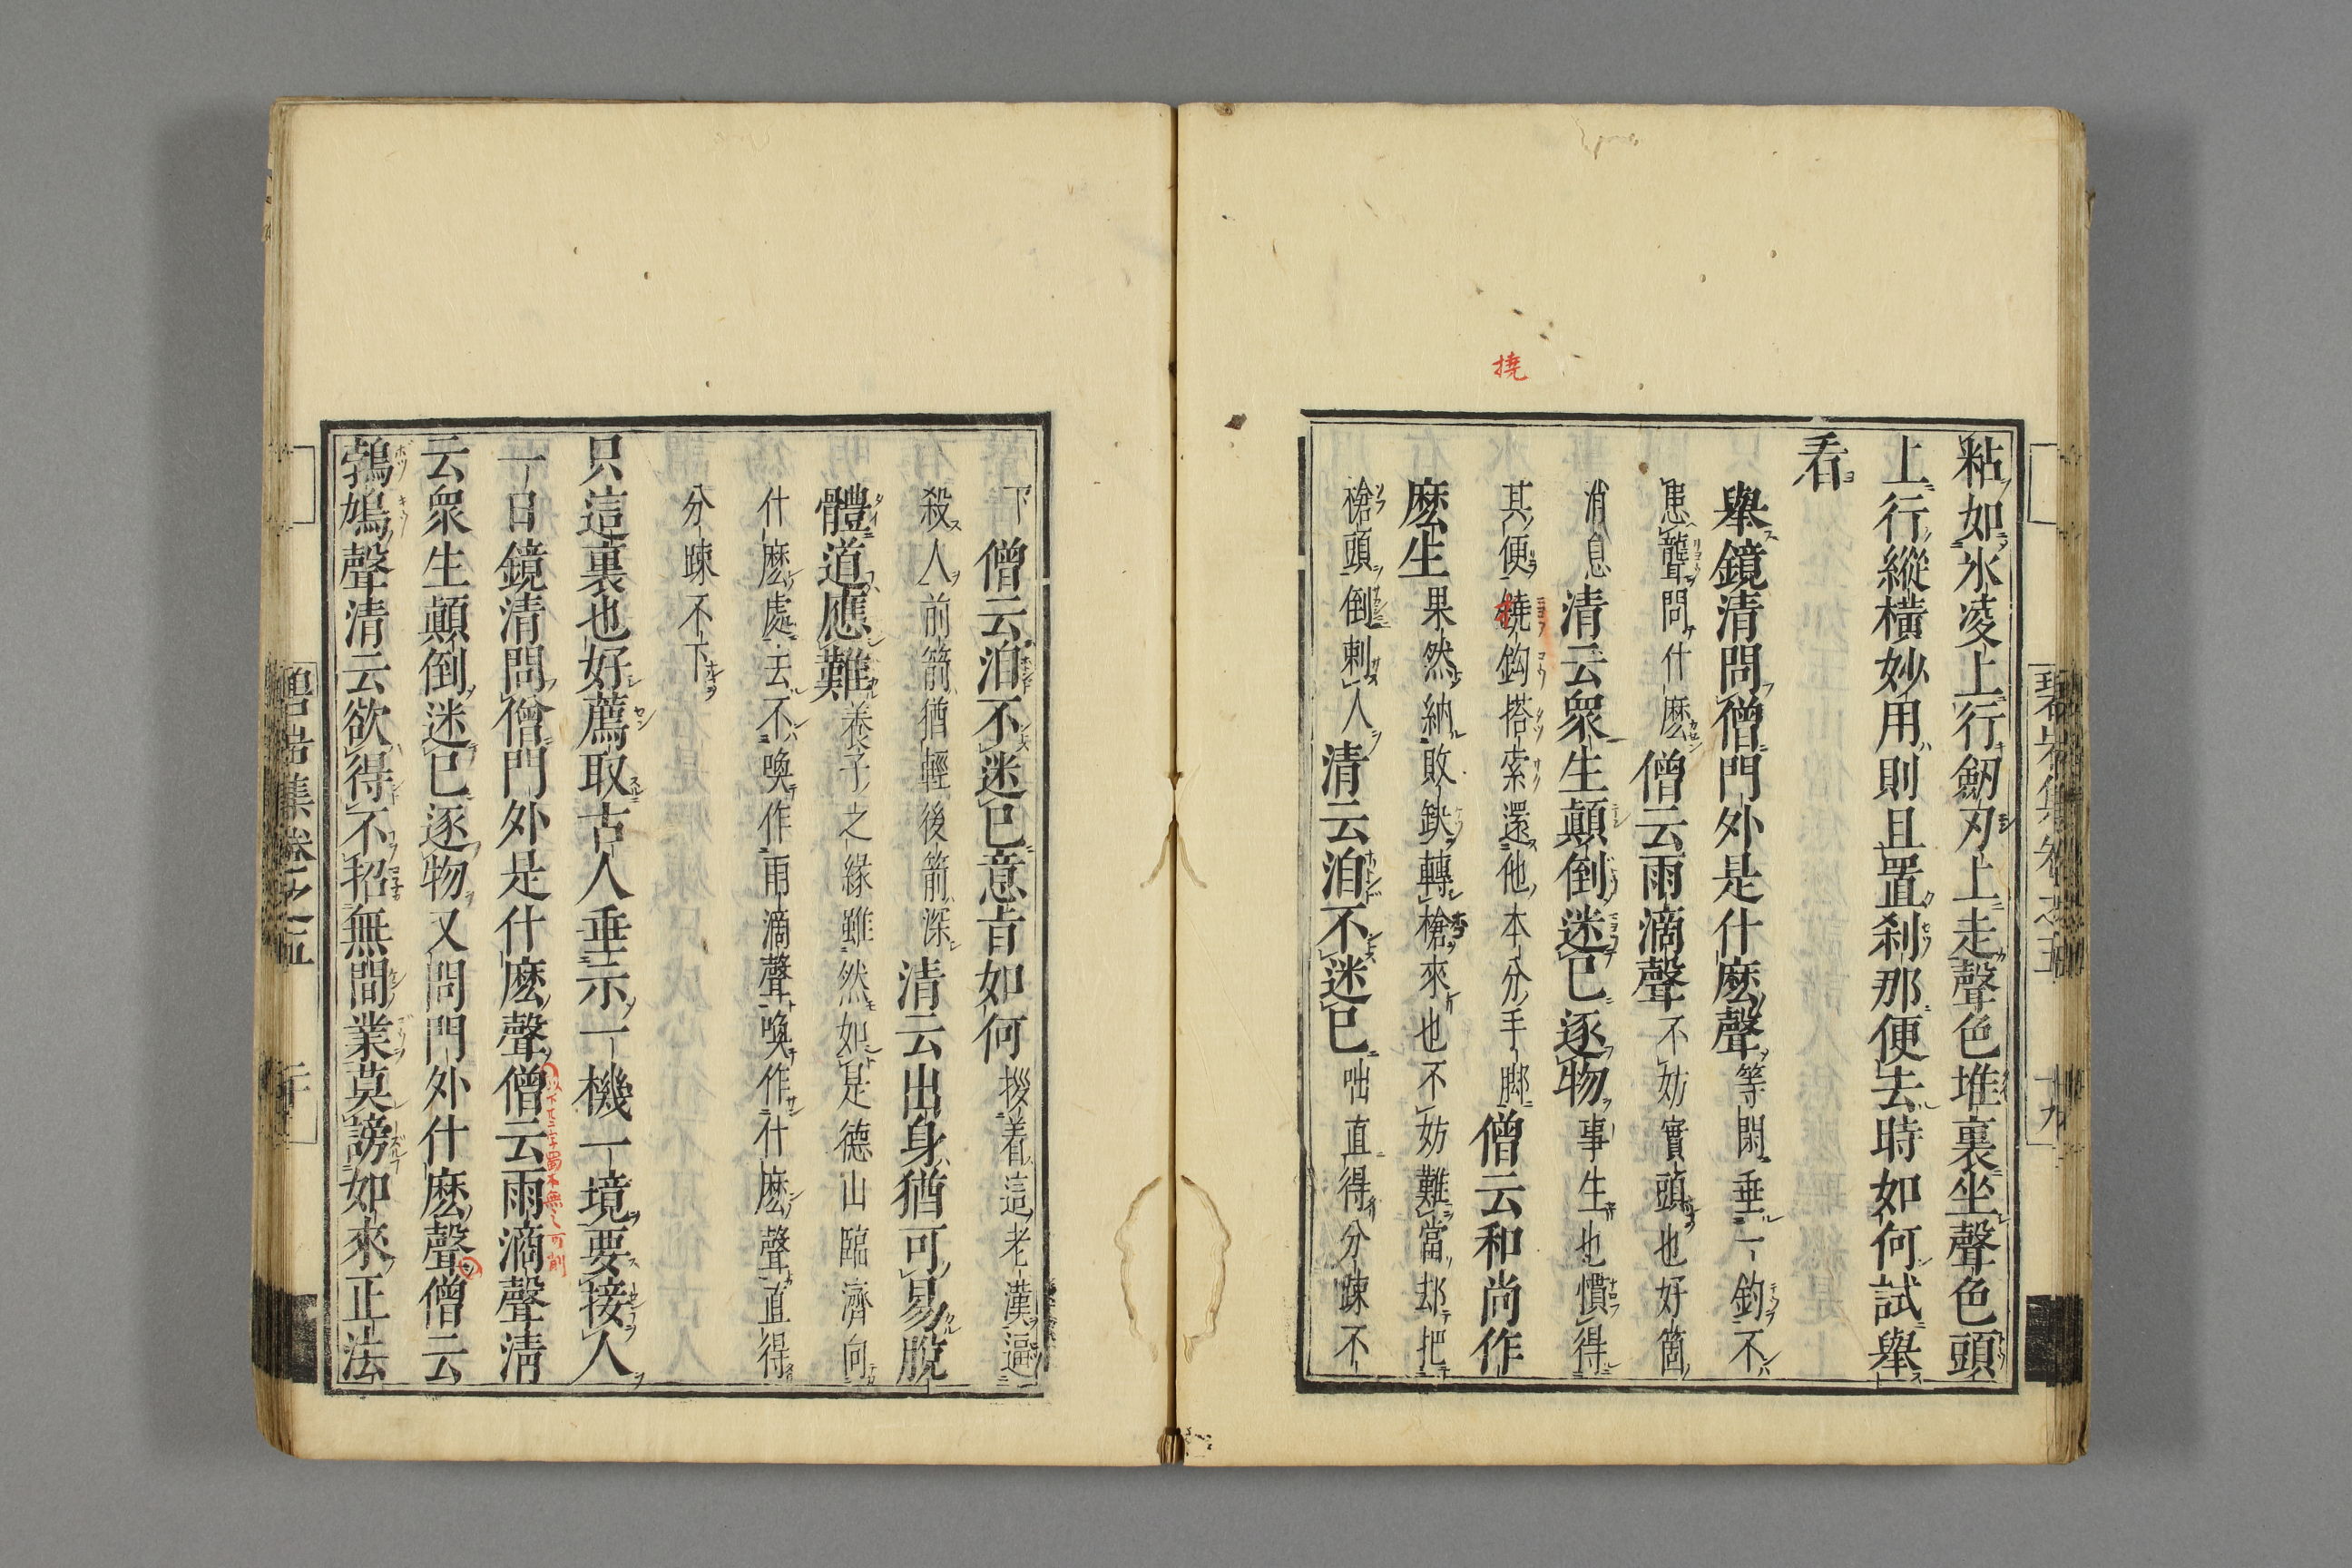 撓
粘如氷凌上行劒刃上走聲色堆裏坐聲色頭
上行縱橫妙用則且置刹那便去時如何試擧
看
擧鏡清問僧門外是什麽聲等閑垂一鈎不
患聾問什麽僧云雨滴聲不妨實頭也好箇
消息清云衆生顛倒迷已逐物事生也慣得
其便鐃鈎搭索還他本分手脚僧云和尚作
麽生果然納敗缺轉槍來也不妨難當却把
槍頭倒刺人清云洎不迷已咄直得分踈不
碧岩集卷之五
十九
下僧云洎不迷已意旨如何拶着這老漢逼
殺人前箭猶輕後箭深清云出身猶可易脫
體道應難養子之緣雖然如是德山臨濟向
什麽處去不喚作雨滴聲喚作什麽聲直得
分踈不下
只這裏也好薦取古人垂示一機一境要接人
一日鏡清問僧門外是什麽聲僧云雨滴聲清
云衆生顛倒迷已逐物又問門外什麽聲僧云
鵓鳩聲清云欲得不招無間業莫謗如來正法
碧岩集卷之五